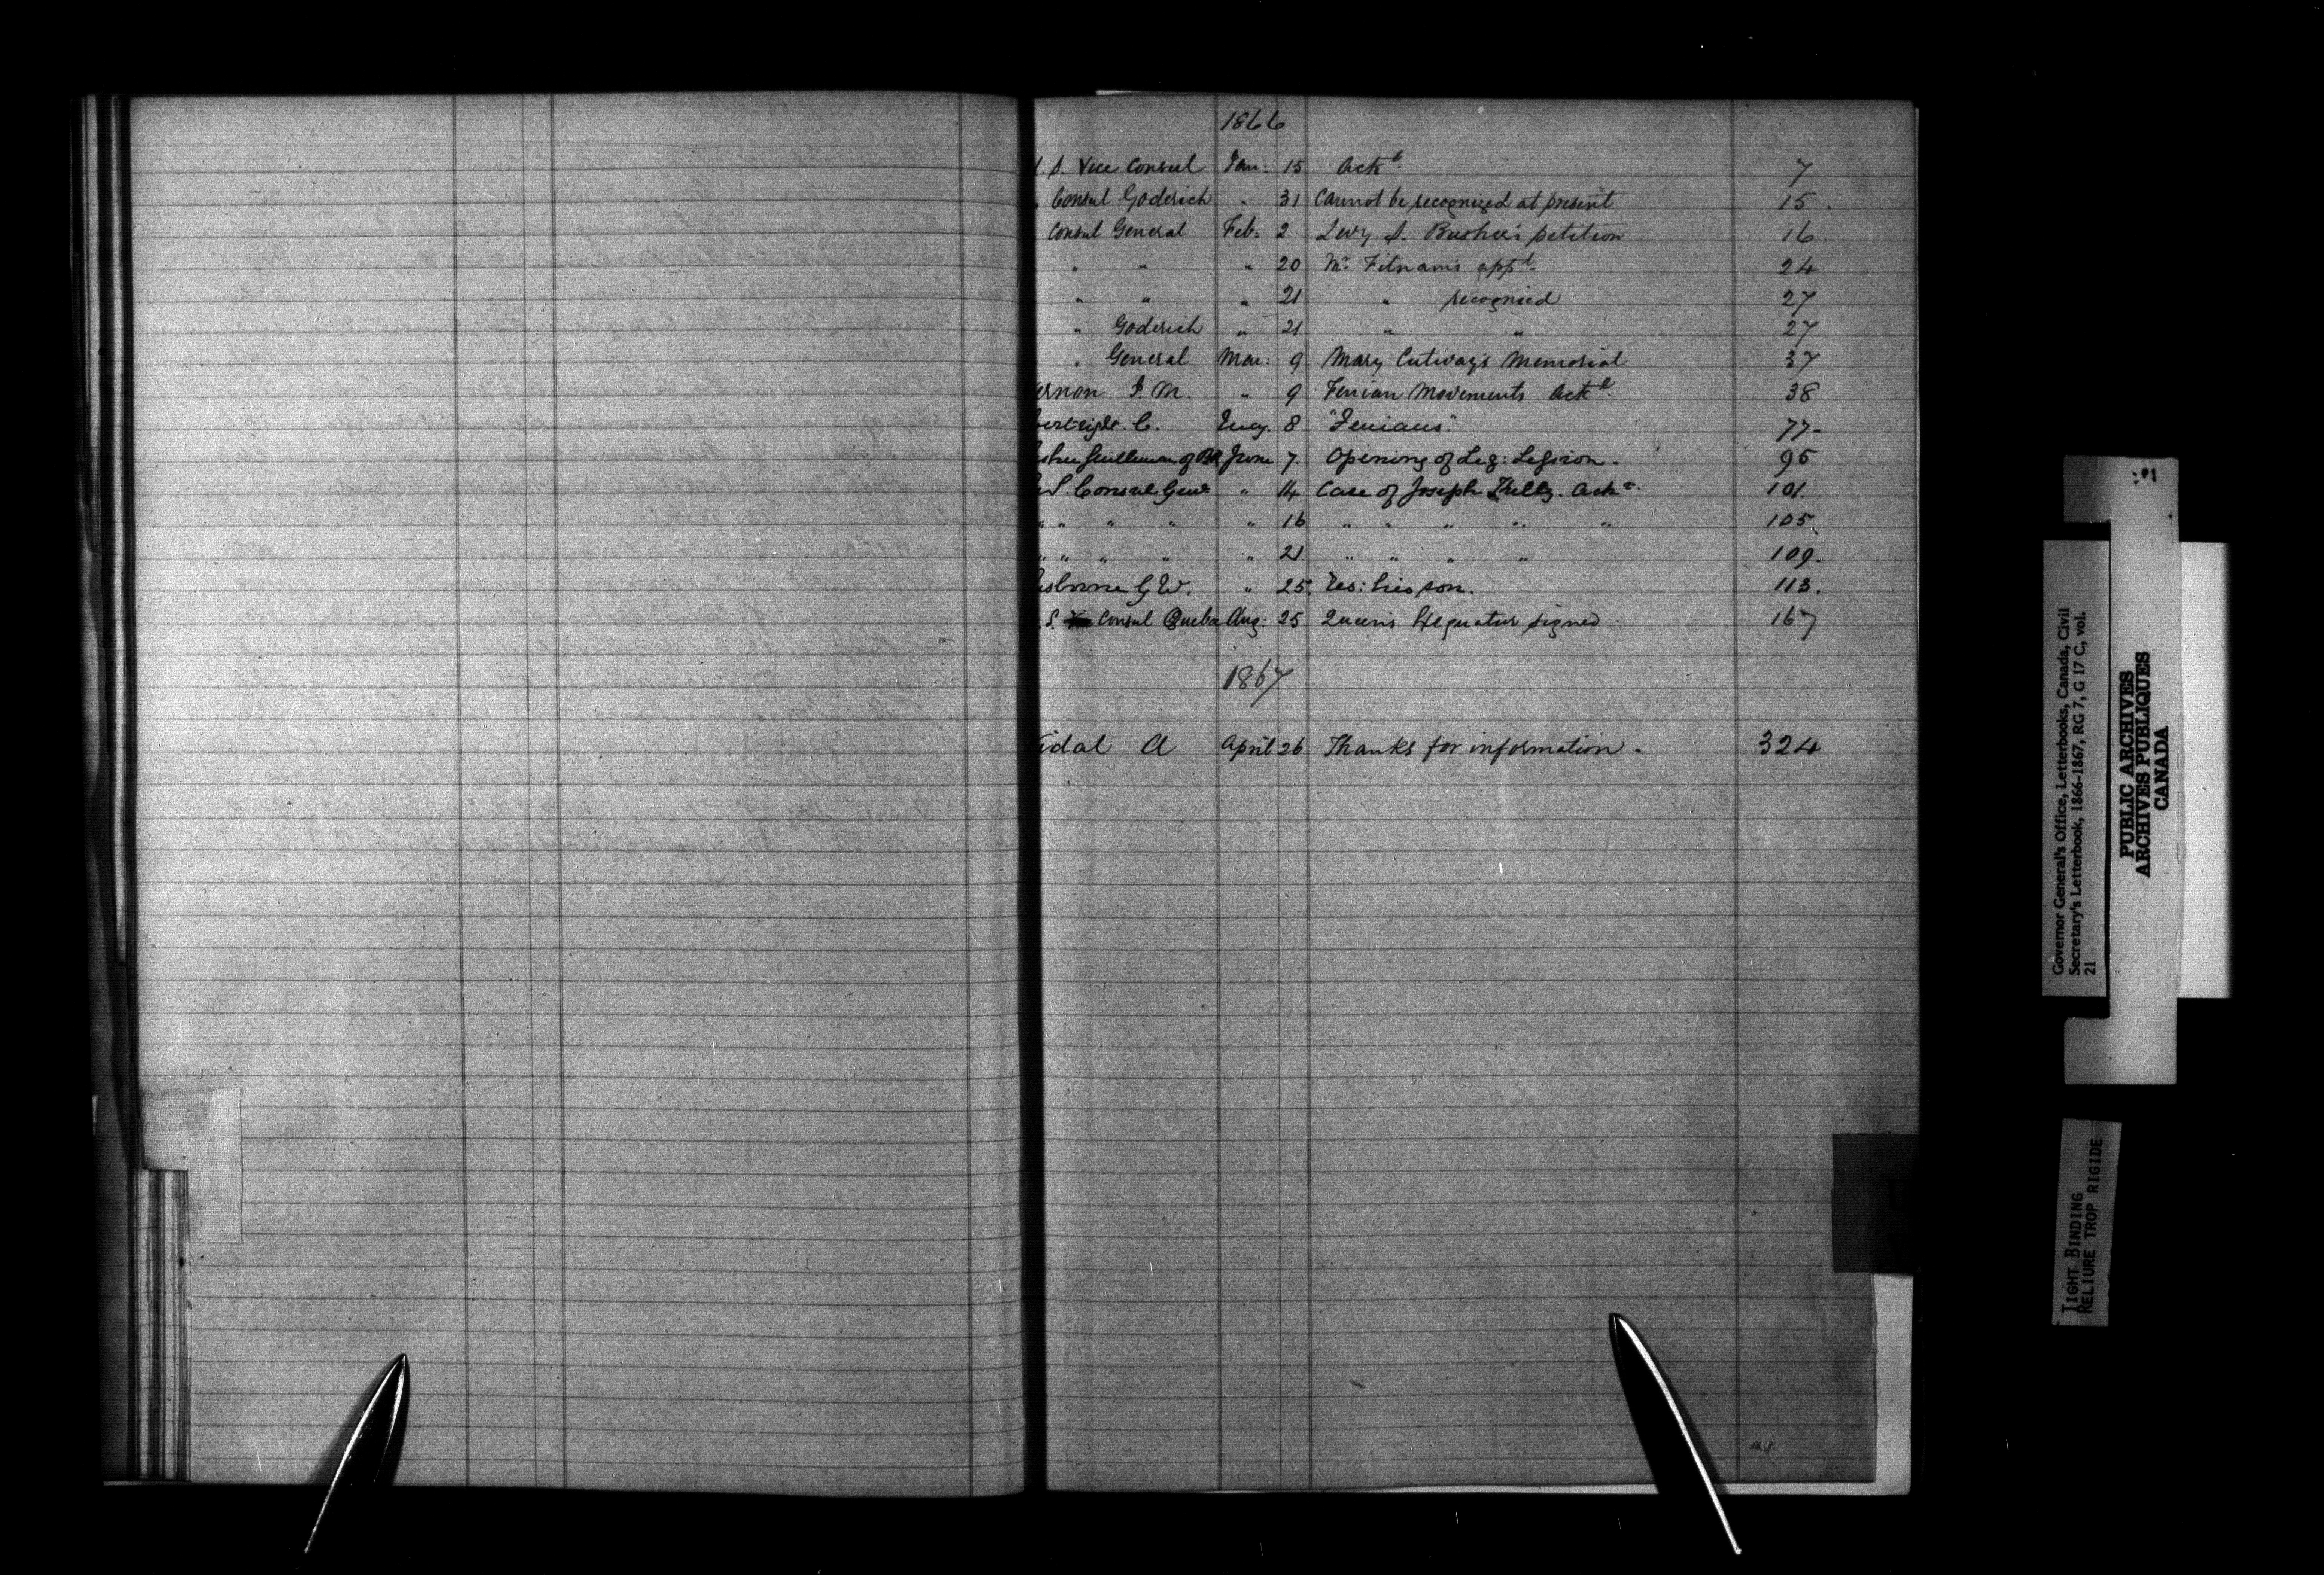 1866
. S. Vice Consul Jan: 15 Ackd. 7
Consul Goderich " 31 Cannot be recognized at present 15.
Consul General Feb: 2 Levy S. petition 16
" " " 20 Mr. Fitnam's appt. 24
" " " 21 " recognised 27
" Goderich " 21 " " 27
" General Mar: 9 Mary Memorial 37
ernon J. M. " 9 Fenian Movements Ackd. 38
C. 8 "Fenians". 77-
June 7. Opening of Leg: 95
S. Consul Genl " 14 Case of Joseph Ackd. 101.
" " " " " 16 " " " " " 105.
" " " " " 21 " " " " 109.
G W. " 25. Res: his son. 113.
. S. Consul Quebec Aug: 25 Queen's signed 167
1867
idal A April 26 Thanks for information. 324
Governor General's Office, Letterbooks, Canada, Civil
Secretary's Letterbook, 1866-1867, RG 7, G 17 C, vol.
21
PUBLIC ARCHIVES
ARCHIVES PUBLIQUES
CANADA
TIGHT BINDING
RELIURE TROP RIGIDE